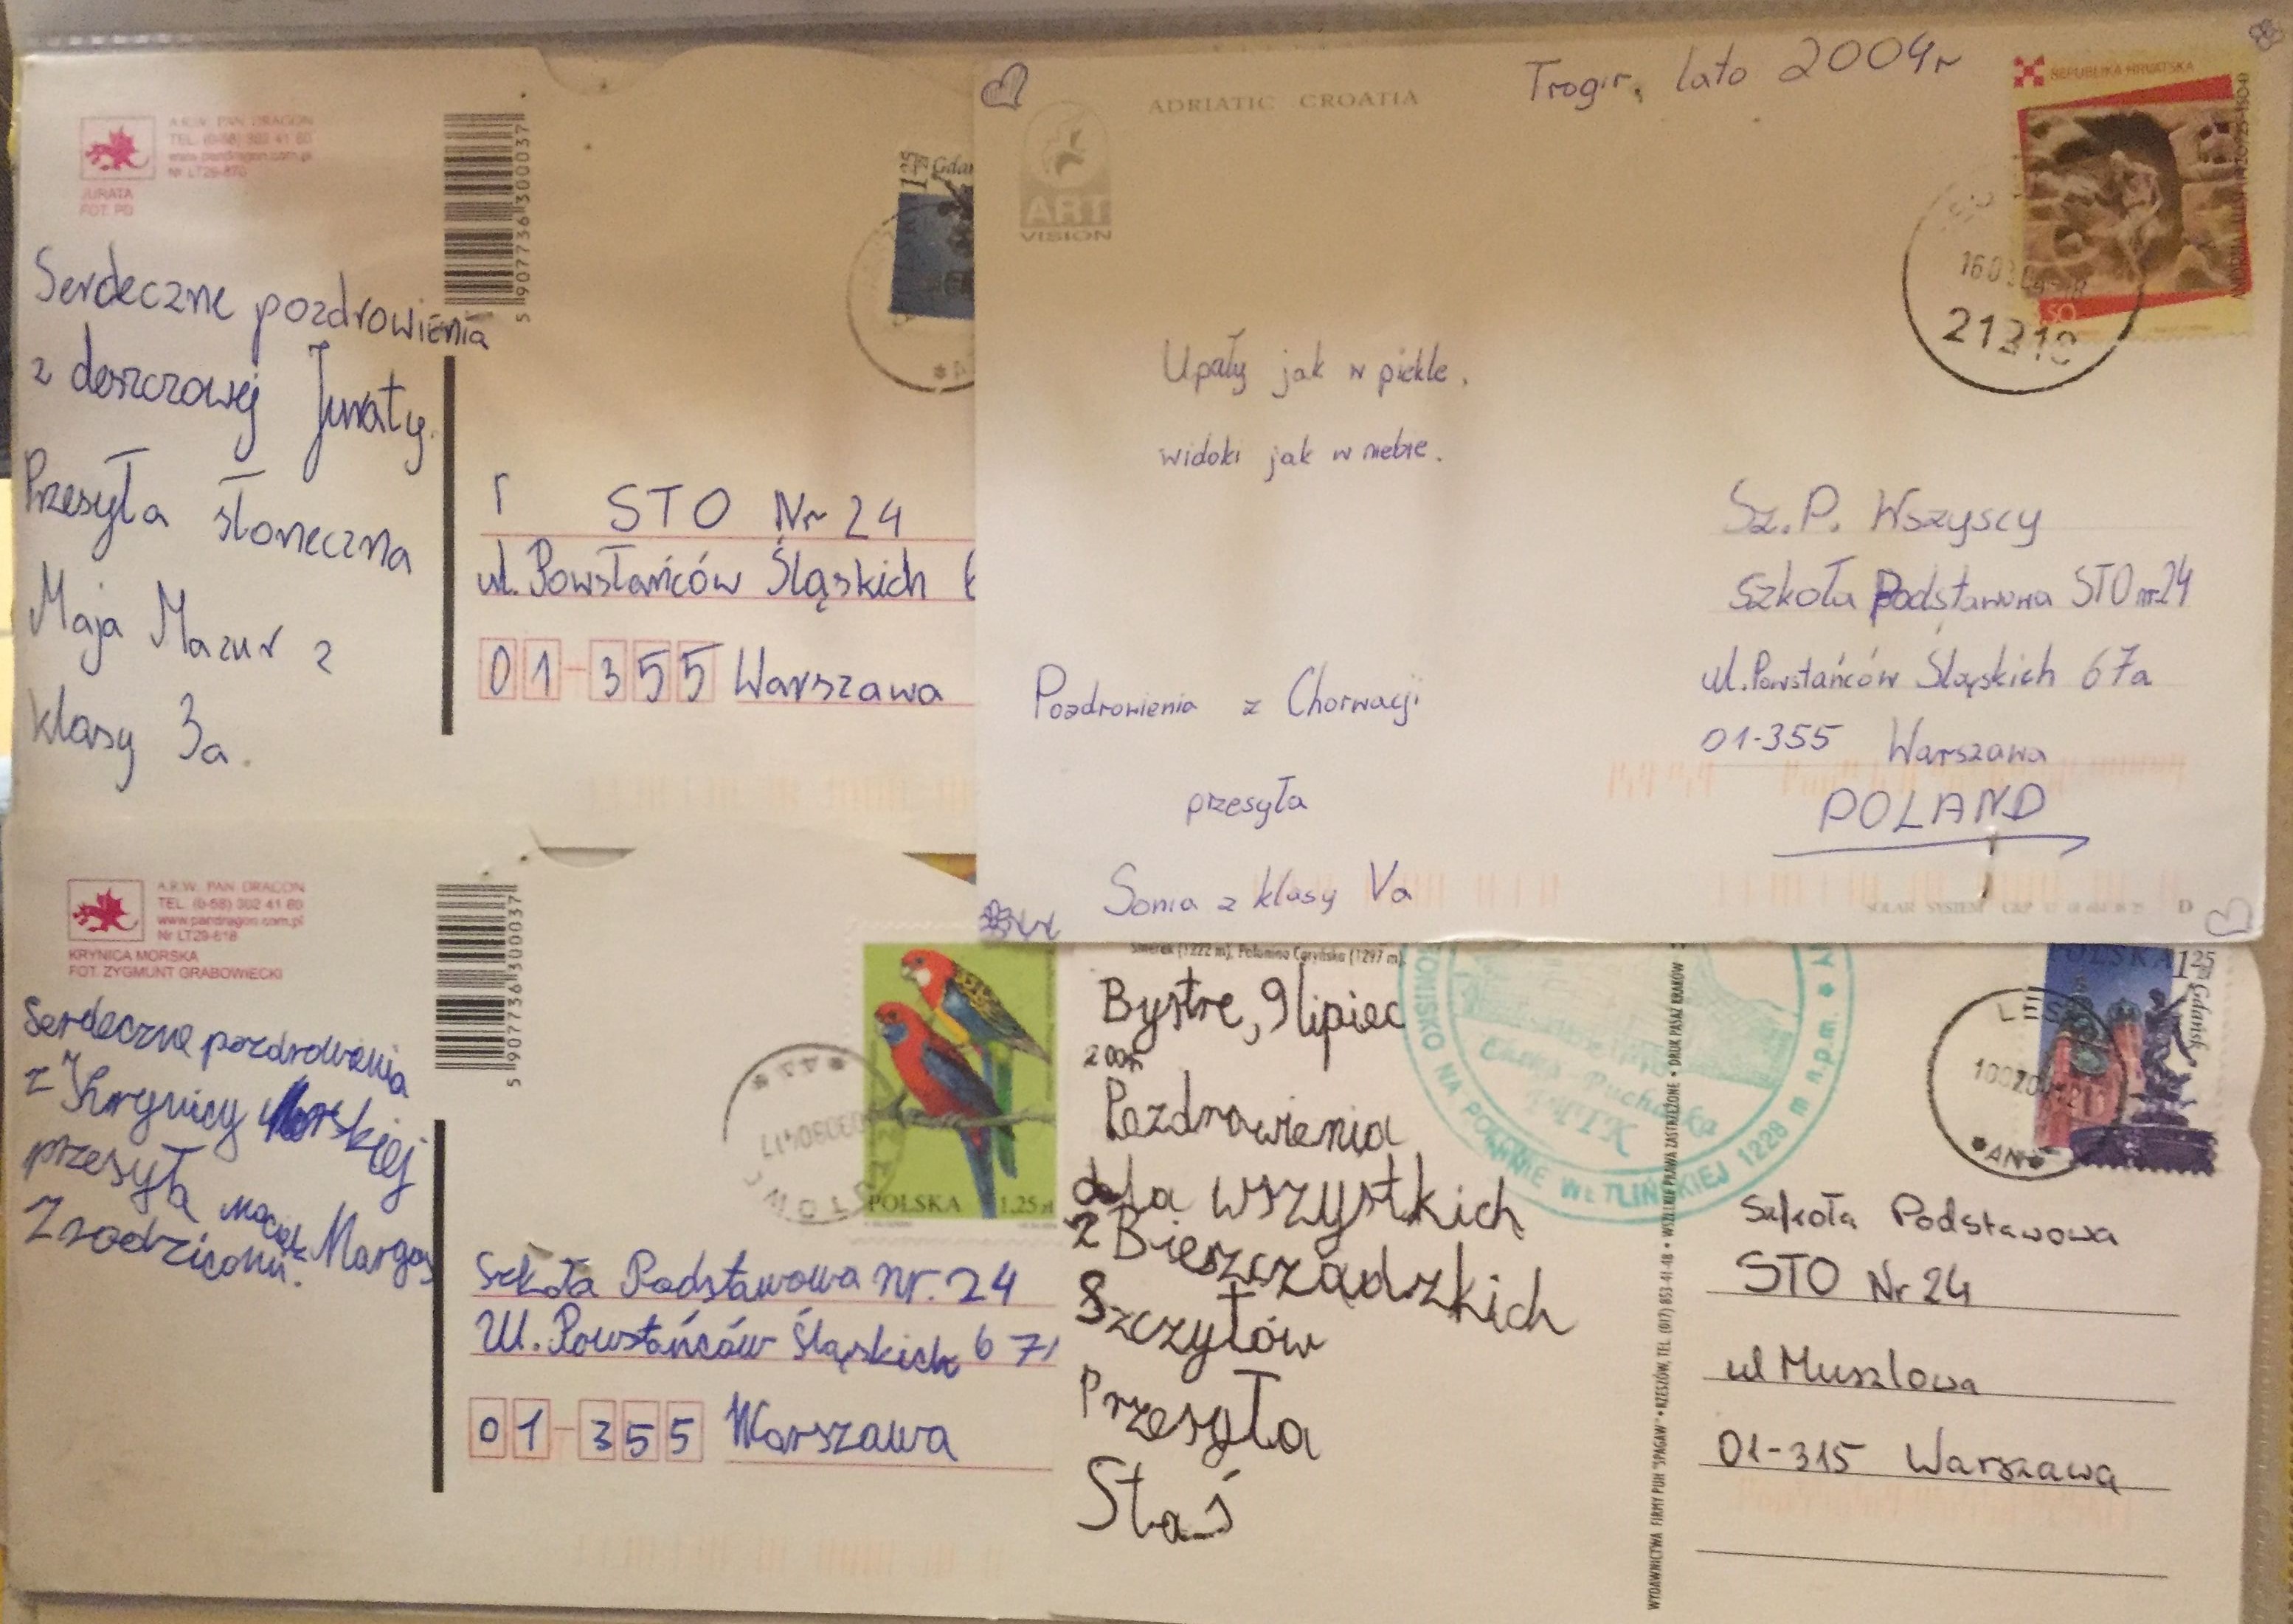 A.R.W. PAN DRAGON
TEL. (0-58) 302 41 60
www.pandragon.com.pl
Nr LT29-870
JURATA
FOT. PD
5 907736 300037
Serdeczne pozdrowienia
z deszczowej Juraty.
Przesyła słoneczna
Maja Mazur z
klasy 3a.
STO Nr 24
ul. Powstańców Śląskich 6
01-355 Warszawa
ADRIATIC CROATIA
ART
VISION
Trogir, lato 2004r
REPUBLIKA HRVATSKA
Upały jak w piekle,
widoki jak w niebie.
Pozdrowienia z Chorwacji
przesyła
Sonia z klasy Va
Sz. P. Wszyscy
Szkoła Podstawowa STO nr 24
ul. Powstańców Śląskich 67a
01-355 Warszawa
POLAND
SOLAR SYSTEM
D
A.R.W. PAN DRAGON
TEL. (0-58) 302 41 60
www.pandragon.com.pl
Nr LT29-618
KRYNICA MORSKA
FOT. ZYGMUNT GRABOWIECKI
5 907736 300037
Serdeczne pozdrowienia
z Krynicy Morskiej
przesyła Maciek Margos
Z rodzicami.
POLSKA 1,25 zł
Szkoła Podstawowa nr. 24
Ul. Powstańców Śląskich 67
01-355 Warszawa
Smerek (1222 m), Połonina Caryńska (1297 m).
Bystre, 9 lipiec
2004
Pozdrowienia
dla wszystkich
z Bieszczadzkich
Szczytów
Przesyła
Staś
NA POŁONINIE WETLIŃSKIEJ 1228 m n.p.m.
Chatka Puchatka
PTTK
WYDAWNICTWA FIRMY PUH "SPAGAW" • RZESZÓW, TEL. (017) 853-41-48 • WSZELKIE PRAWA ZASTRZEŻONE • DRUK PASAŻ KRAKÓW
POLSKA 1,25 zł
Gdańsk
Szkoła Podstawowa
STO Nr 24
ul Muszlowa
01-315 Warszawa